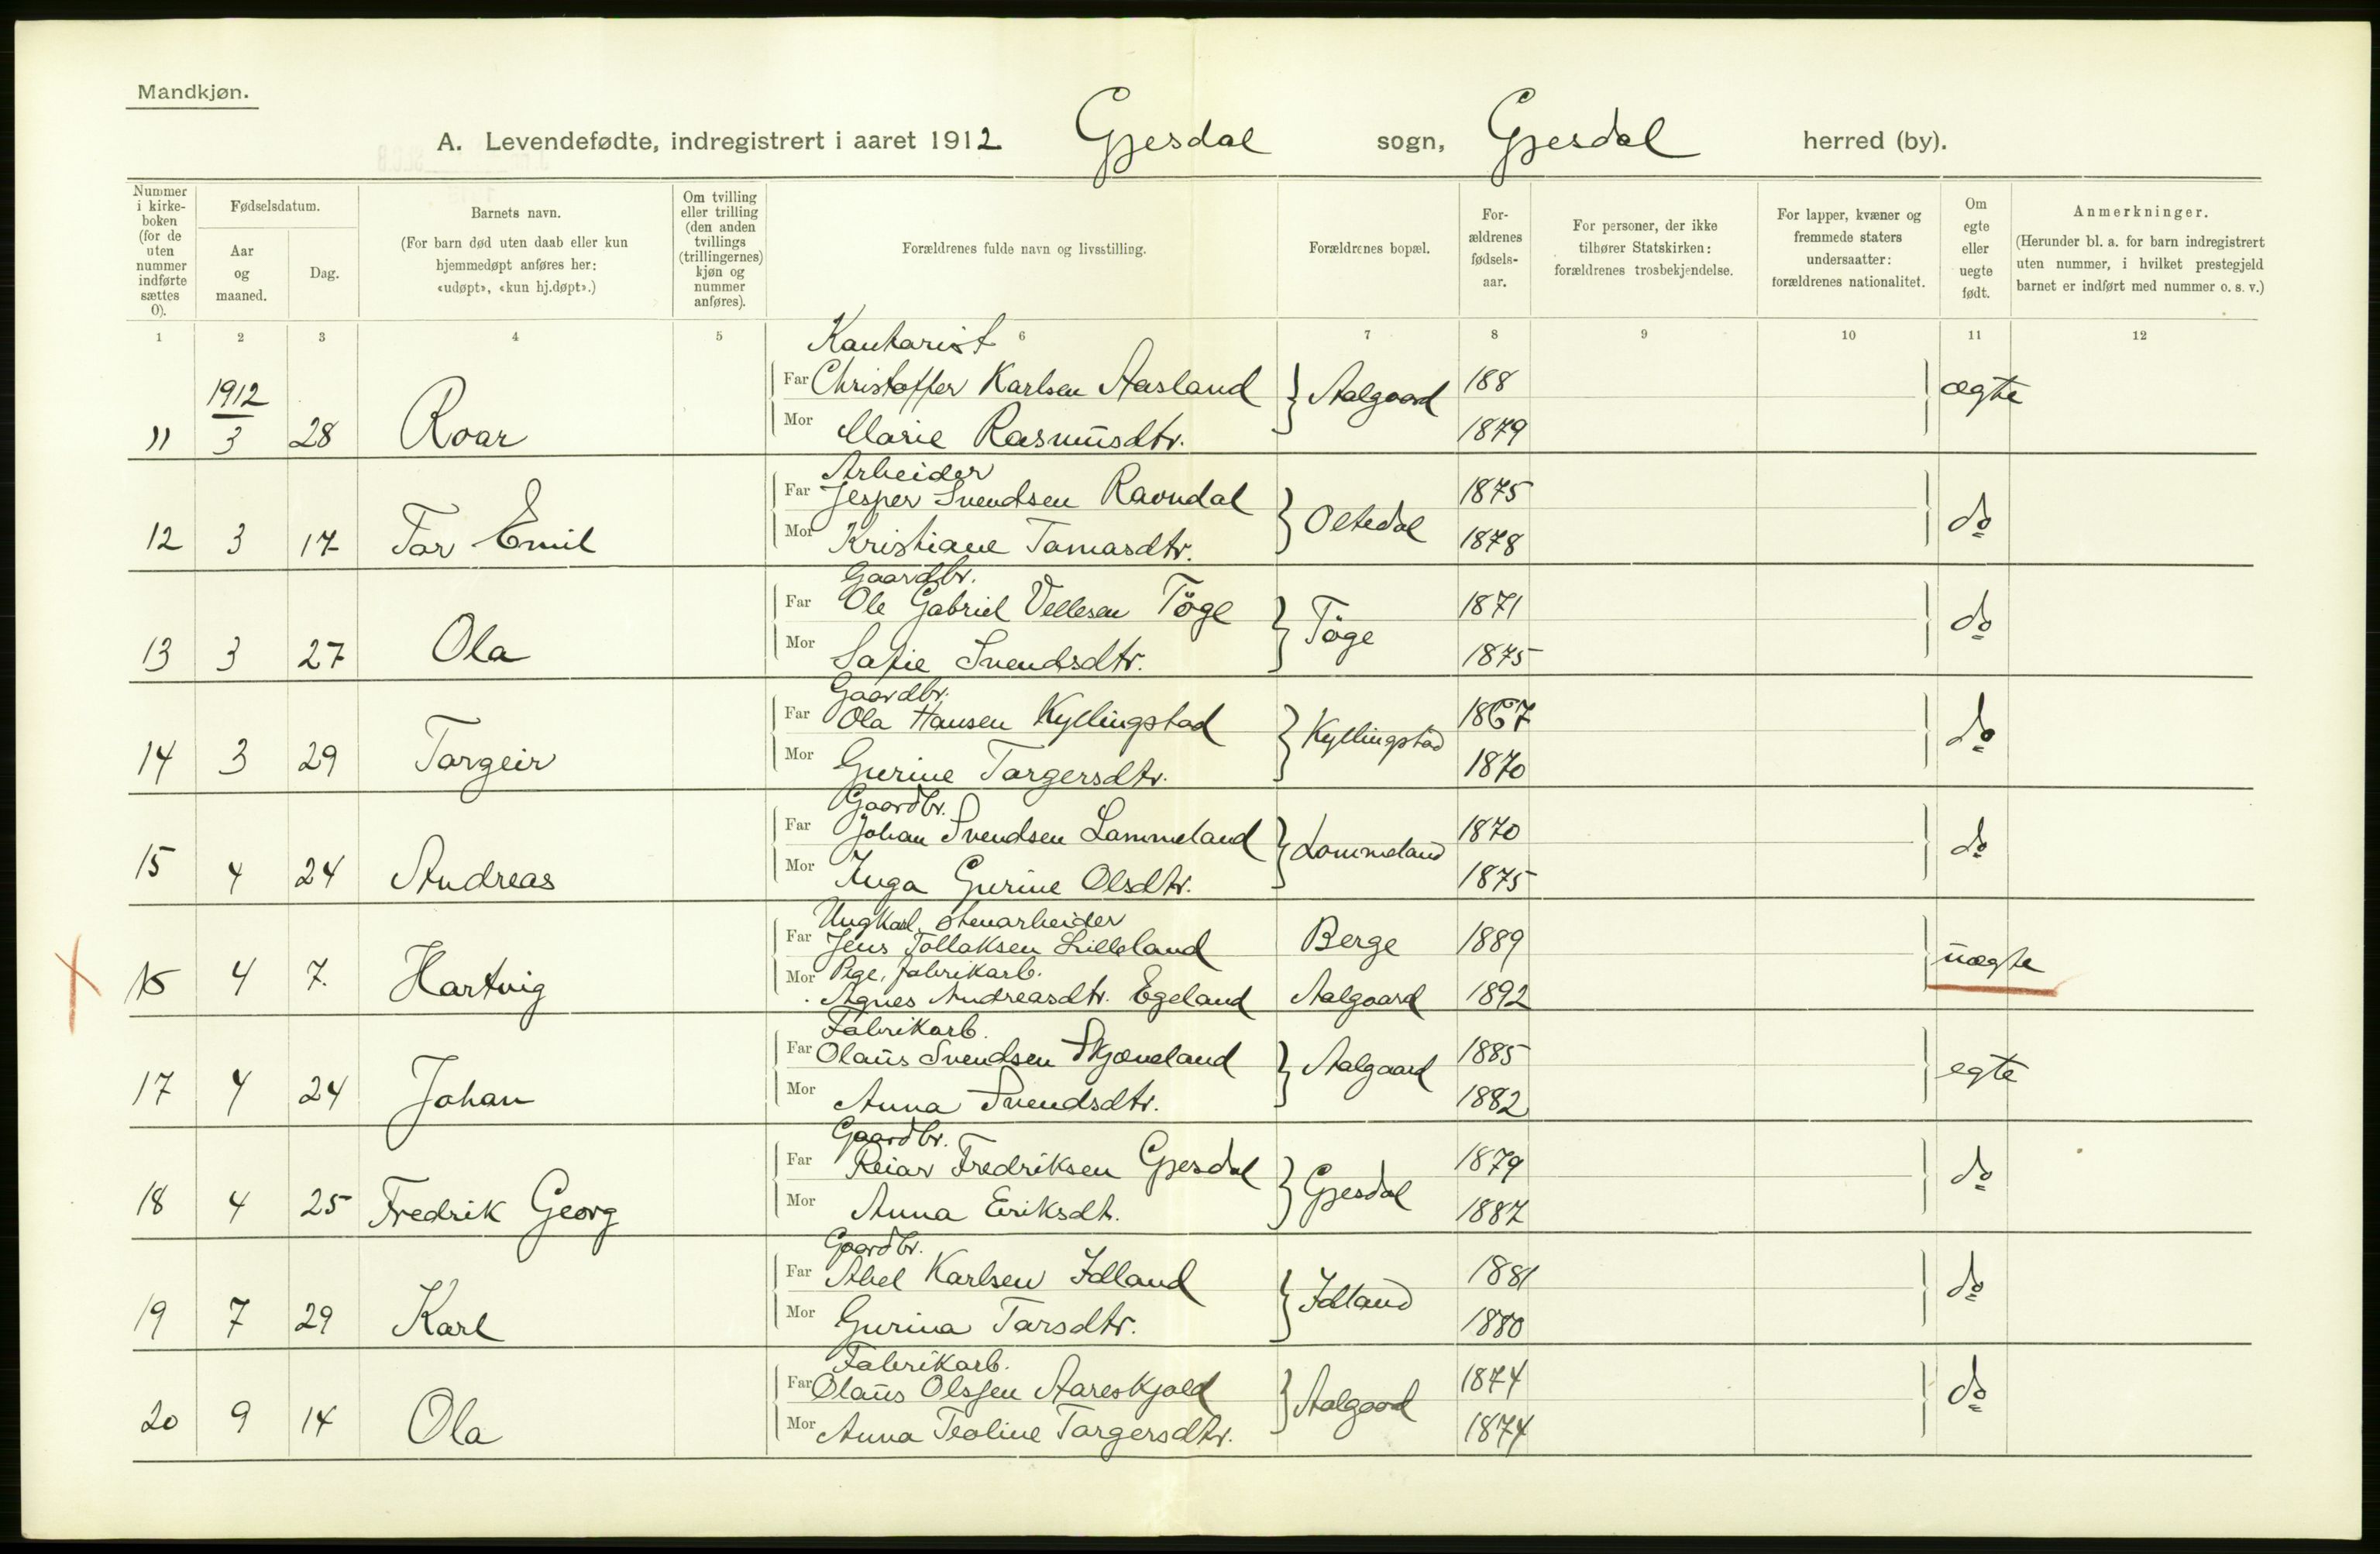 Mandkjøn.
A. Levendefødte, indregistrert i aaret 1912 Gjesdal sogn, Gjesdal herred (by).
Nummer i kirke-boken (for de uten nummer indførte sættes 0).
Fødselsdatum.
Aar og maaned.
Dag.
Barnets navn.
(For barn død uten daab eller kun hjemmedøpt anføres her: «udøpt», «kun hj.døpt».)
Om tvilling eller trilling (den anden tvillings (trillingernes) kjøn og nummer anføres).
Forældrenes fulde navn og livsstilling.
Forældrenes bopæl.
For-ældrenes fødsels-aar.
For personer, der ikke tilhører Statskirken: forældrenes trosbekjendelse.
For lapper, kvæner og fremmede staters undersaatter: forældrenes nationalitet.
Om egte eller uegte født.
Anmerkninger.
(Herunder bl. a. for barn indregistrert uten nummer, i hvilket prestegjeld barnet er indført med nummer o. s. v.)
1 2 3 4 5 6 7 8 9 10 11 12
Kontorist
1912 Far Christoffer Karlsen Aasland } Aalgaard 188 } ægte
11 3 28 Roar Mor Marie Rasmusdtr. 1879
Arbeider
Far Jesper Svendsen Ravndal } Oltedal 1875 } do
12 3 17 Tor Emil Mor Kristiane Tomasdtr. 1878
Gaardbr.
Far Ole Gabriel Vellesen Töge } Töge 1871 } do
13 3 27 Ola Mor Sofie Svendsdtr. 1875
Gaardbr.
Far Ola Hansen Kyllingstad } Kyllingstad 1867 } do
14 3 29 Torgeir Mor Gurine Torgersdtr. 1870
Gaardbr.
Far Johan Svendsen Lommeland } Lommeland 1870 } do
15 4 24 Andreas Mor Inga Gurine Olsdtr. 1875
Ungkarl, stenarbeider
Far Jens Tollaksen Lilleland Berge 1889 } uægte
16 4 7. Hartvig Mor Pige, fabrikarb.
Agnes Andreasdtr. Egeland Aalgaard 1892
Fabrikarb.
Far Olaus Svendsen Skjæveland } Aalgaard 1885 } egte
17 4 24 Johan Mor Anna Svendsdtr. 1882
Gaardbr.
Far Reiar Fredriksen Gjesdal } Gjesdal 1879 } do
18 4 25 Fredrik Georg Mor Anna Eriksdt. 1887
Gaardbr.
Far Abel Karlsen Idland } Idland 1881 } do
19 7 29 Karl Mor Gurina Torsdtr. 1880
Fabrikarb.
Far Olaus Olsen Aareskjold } Aalgaard 1874 } do
20 9 14 Ola Mor Anna Teoline Torgersdtr. 1874